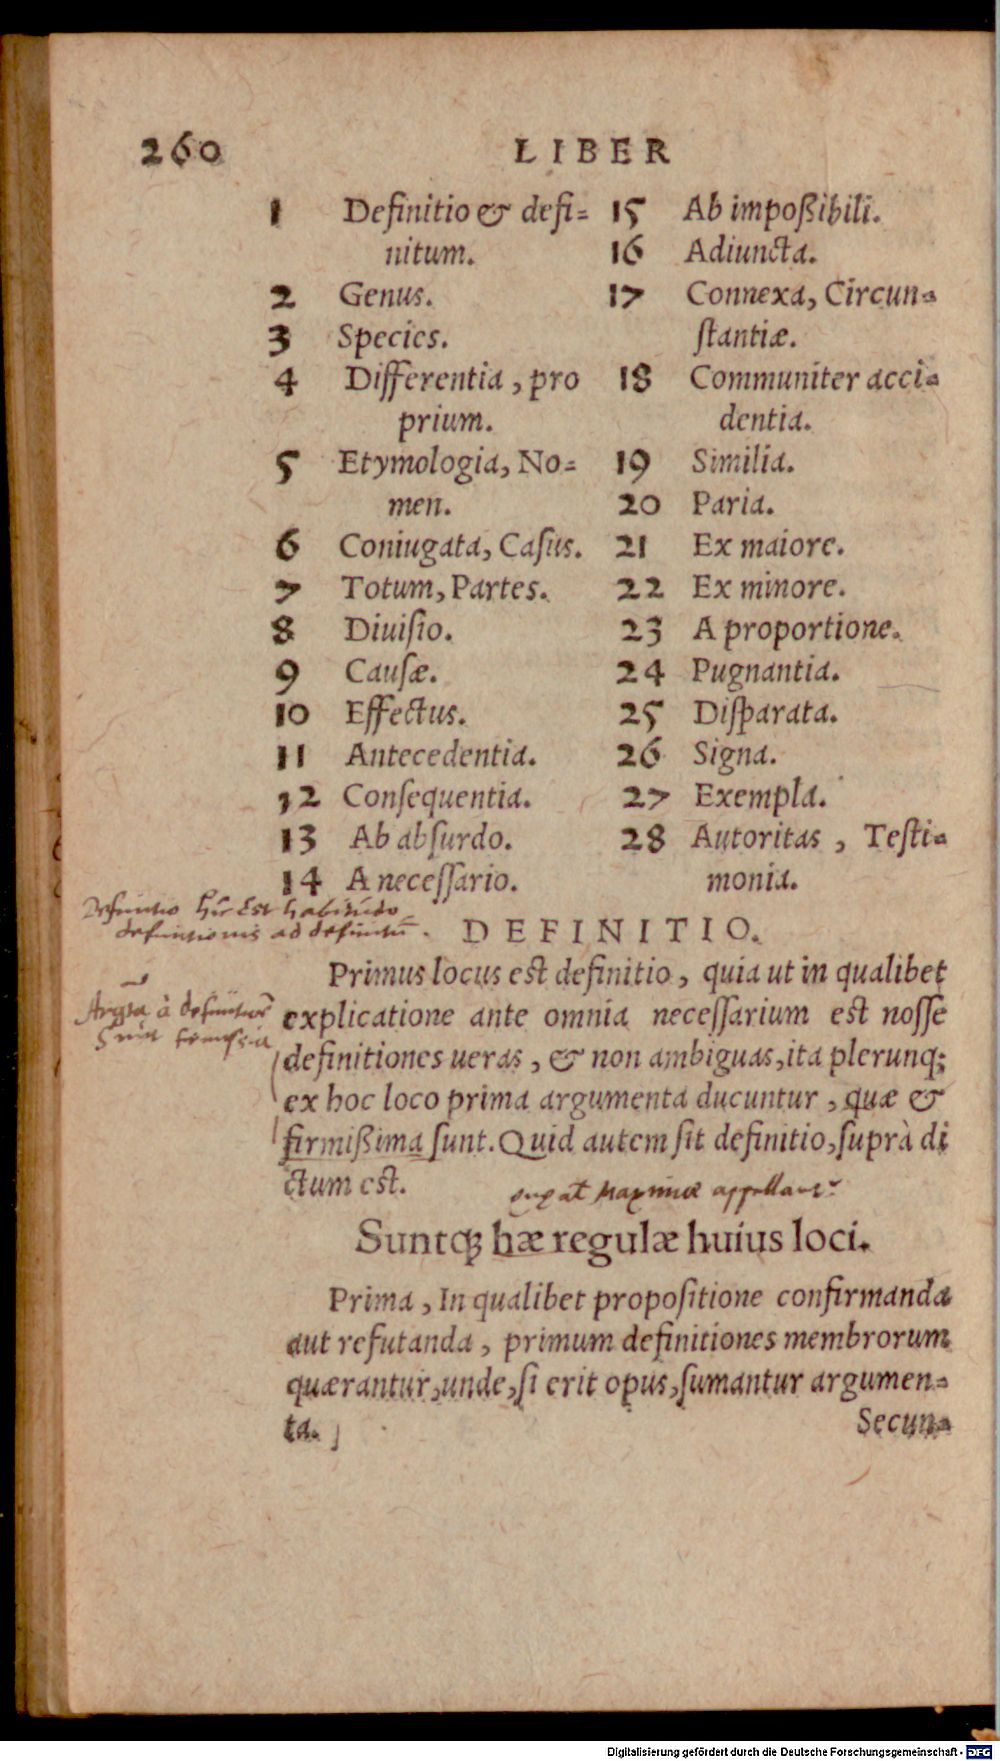 260 LIBER
1 Definitio & defi=
nitum.
2 Genus.
3 Species.
4 Differentia, pro
prium.
5 Etymologia, No=
men.
6 Coniugata, Casus.
7 Totum, Partes.
8 Diuisio.
9 Causæ.
10 Effectus.
11 Antecedentia.
12 Consequentia.
13 Ab absurdo.
14 A necessario.
15 Ab impoßibili.
16 Adiuncta.
17 Connexa, Circun=
stantiæ.
18 Communiter acci=
dentia.
19 Similia.
20 Paria.
21 Ex maiore.
22 Ex minore.
23 A proportione.
24 Pugnantia.
25 Disparata.
26 Signa.
27 Exempla.
28 Autoritas, Testi=
monia.
Definitio hic Est habitudo
definitionis ad definitū.
DEFINITIO.
Primus locus est definitio, quia ut in qualibet
explicatione ante omnia necessarium est nosse
definitiones ueras, & non ambiguas, ita plerunq;
ex hoc loco prima argumenta ducuntur, quæ &
firmißima sunt. Quid autem sit definitio, suprà di
ctum est.
à definitione
appellant
Suntq; hæ regulæ huius loci.
Prima, In qualibet propositione confirmanda
aut refutanda, primum definitiones membrorum
quærantur, unde, si erit opus, sumantur argumen=
ta.
Secun=
Digitalisierung gefördert durch die Deutsche Forschungsgemeinschaft - DFG